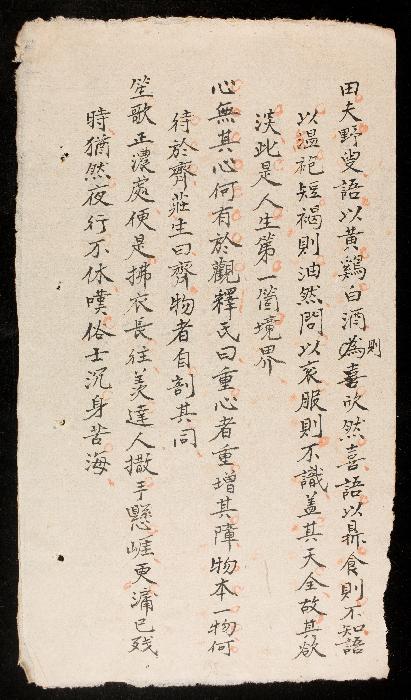 田夫野叟語以黃鷄白酒為喜欣然喜語以鼎食則不知語
則
以縕袍短褐則油然問以衮服則不識盖其天全故其欲
淡此是人生第一箇境界
心無其心何有於觀釋氏曰重心者重增其障物本一物何
待於齊莊生曰齊物者自剖其同
笙歌正濃處便是拂衣長往羡達人撒手懸崖更漏已残
時猶然夜行不休嘆俗士沉身苦海